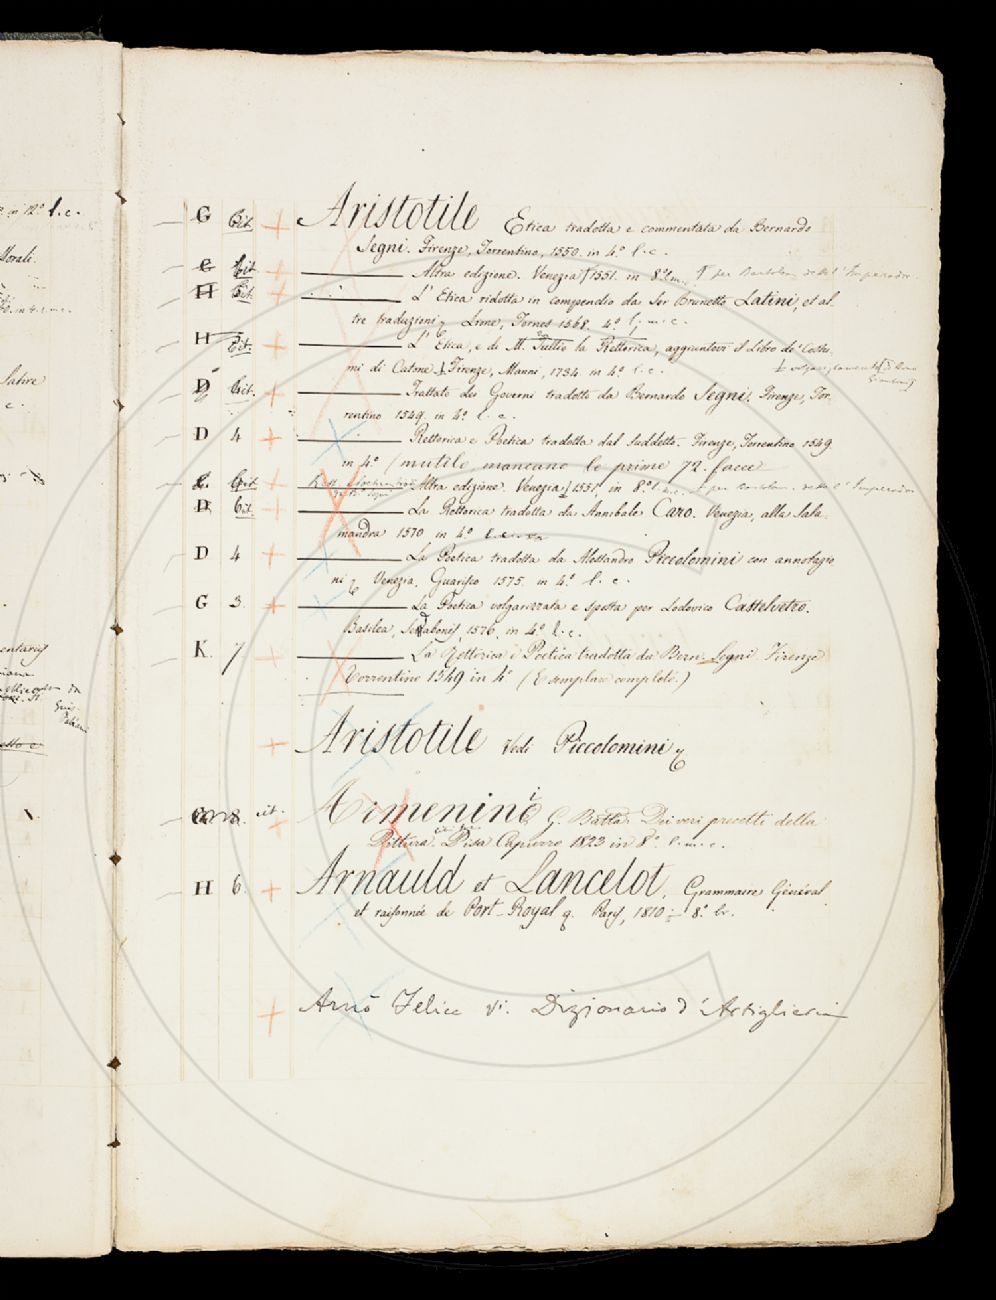 in 12º l. c.
Morali.
Satire
c.
G Cit. + Aristotile Etica tradotta e commentata da Bernardo
Segni. Firenze, Torrentino, 1550. in 4º l. c.
G Cit + Altra edizione. Venezia 1551. in 8º l.m.c. per Bartolom. detto l'Imperador
H Cit. + L' Etica ridotta in compendio da Ser Brunetto Latini, et al
tre traduzioni, Lione, Tornes 1568. 4º l. m. c.
H Cit. + L' Etica, e di M. Tullio la Rettorica, aggiuntovi il Libro de' Costu-
mi di Catone. Firenze, Manni, 1734. in 4º l. c.
D Cit. + Trattato dei Governi tradotto da Bernardo Segni. Firenze, Tor-
rentino 1549. in 4º l. c.
D 4 + Rettorica e Poetica tradotta dal Suddetto. Firenze, Torrentino 1549
in 4º (mutilo mancano le prime 72. facce
C. Cit + Altra edizione. Venezia 1551. in 8º l. m. c. per Bartolom. detto l'Imperador
D Cit. + La Rettorica tradotta da Annibale Caro. Venezia, alla Sala-
mandra 1570 in 4º
D 4 + La Poetica tradotta da Alessandro Piccolomini con annotazio
ni, Venezia, Guarisco 1575. in 4º l. c.
G 3. + La Poetica volgarizzata e sposta per Lodovico Castelvetro.
Basilea, Sedabonis, 1576. in 4º l. c.
K. 7 + La Rettorica e Poetica tradotta da Bern. Segni. Firenze
Torrentino 1549 in 4º (Esemplare completo.)
+ Aristotile Vedi Piccolomini
cit. + Armenini G. Batta. Dei veri precetti della
Pittura. Pisa Capurro 1823 in 8º l. m. c.
H 6. + Arnauld et Lancelot, Grammaire Général
et raisonnée de Port-Royal Paris, 1810 8º br.
+ Arnò Felice Vi. Dizionario d'Artiglieria